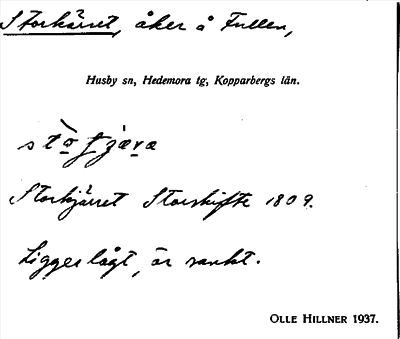 Storkärret, åker å Fullen,
Husby sn, Hedemora tg, Kopparbergs län.
Storkjärret Storskifte 1809.
Ligger lågt, är sankt.
OLLE HILLNER 1937.